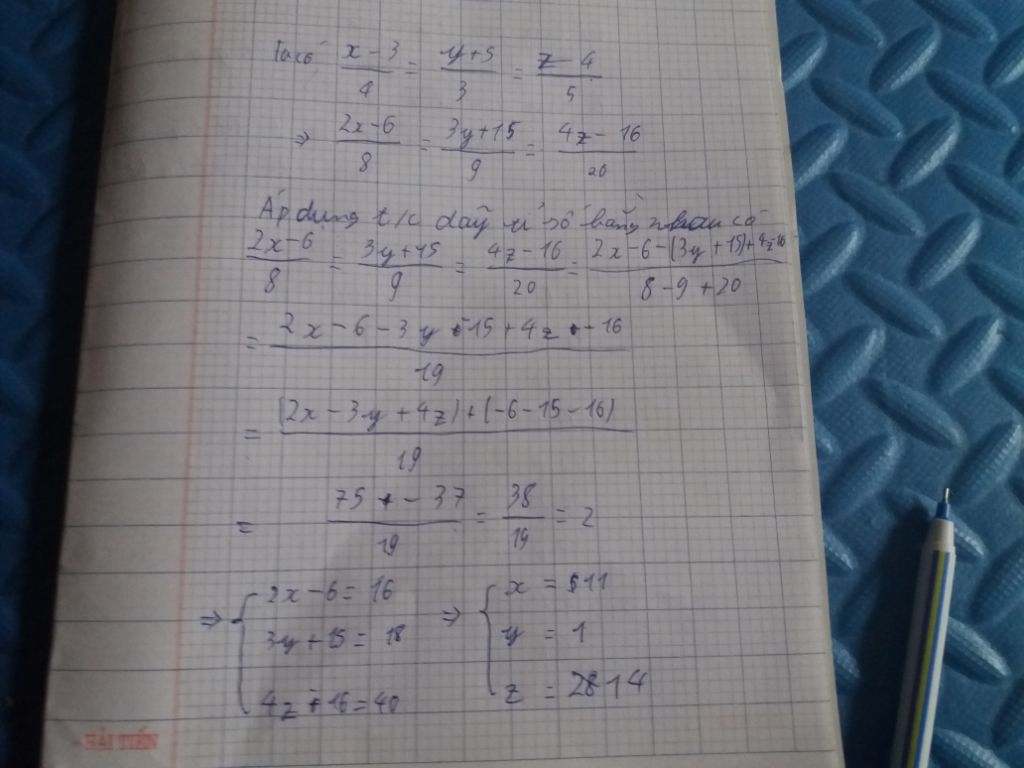 Ta có x-3/4 = y+5/3 = z-4/5
⇒ 2x-6/8 = 3y+15/9 = 4z-16/20
Áp dụng t/c dãy tỉ số bằng nhau có
2x-6/8 = 3y+15/9 = 4z-16/20 = 2x-6-(3y+15)+4z-16/8-9+20
= 2x-6-3y-15+4z-16/19
= (2x-3y+4z)+(-6-15-16)/19
= 75-37/19 = 38/19 = 2
⇒ { 2x-6=16 ⇒ { x = 11
3y+15=18 y = 1
4z-16=40 z = 14
HẢI TIẾN